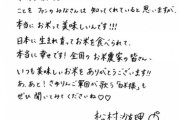 ことも みなさんは 知ってくれていると思いますが、
本当にお米って美味しいんです!!!
日本に生まれ育ってお米を食べられて、
本当に幸せです! 全国のお米農家の皆さん、
いつも美味しいお米をありがとうございます!!
あ、あと! さゆりんご軍団が歌う「白米様」も
ぜひ聞いてみてくださいね♡♡
松村沙友理